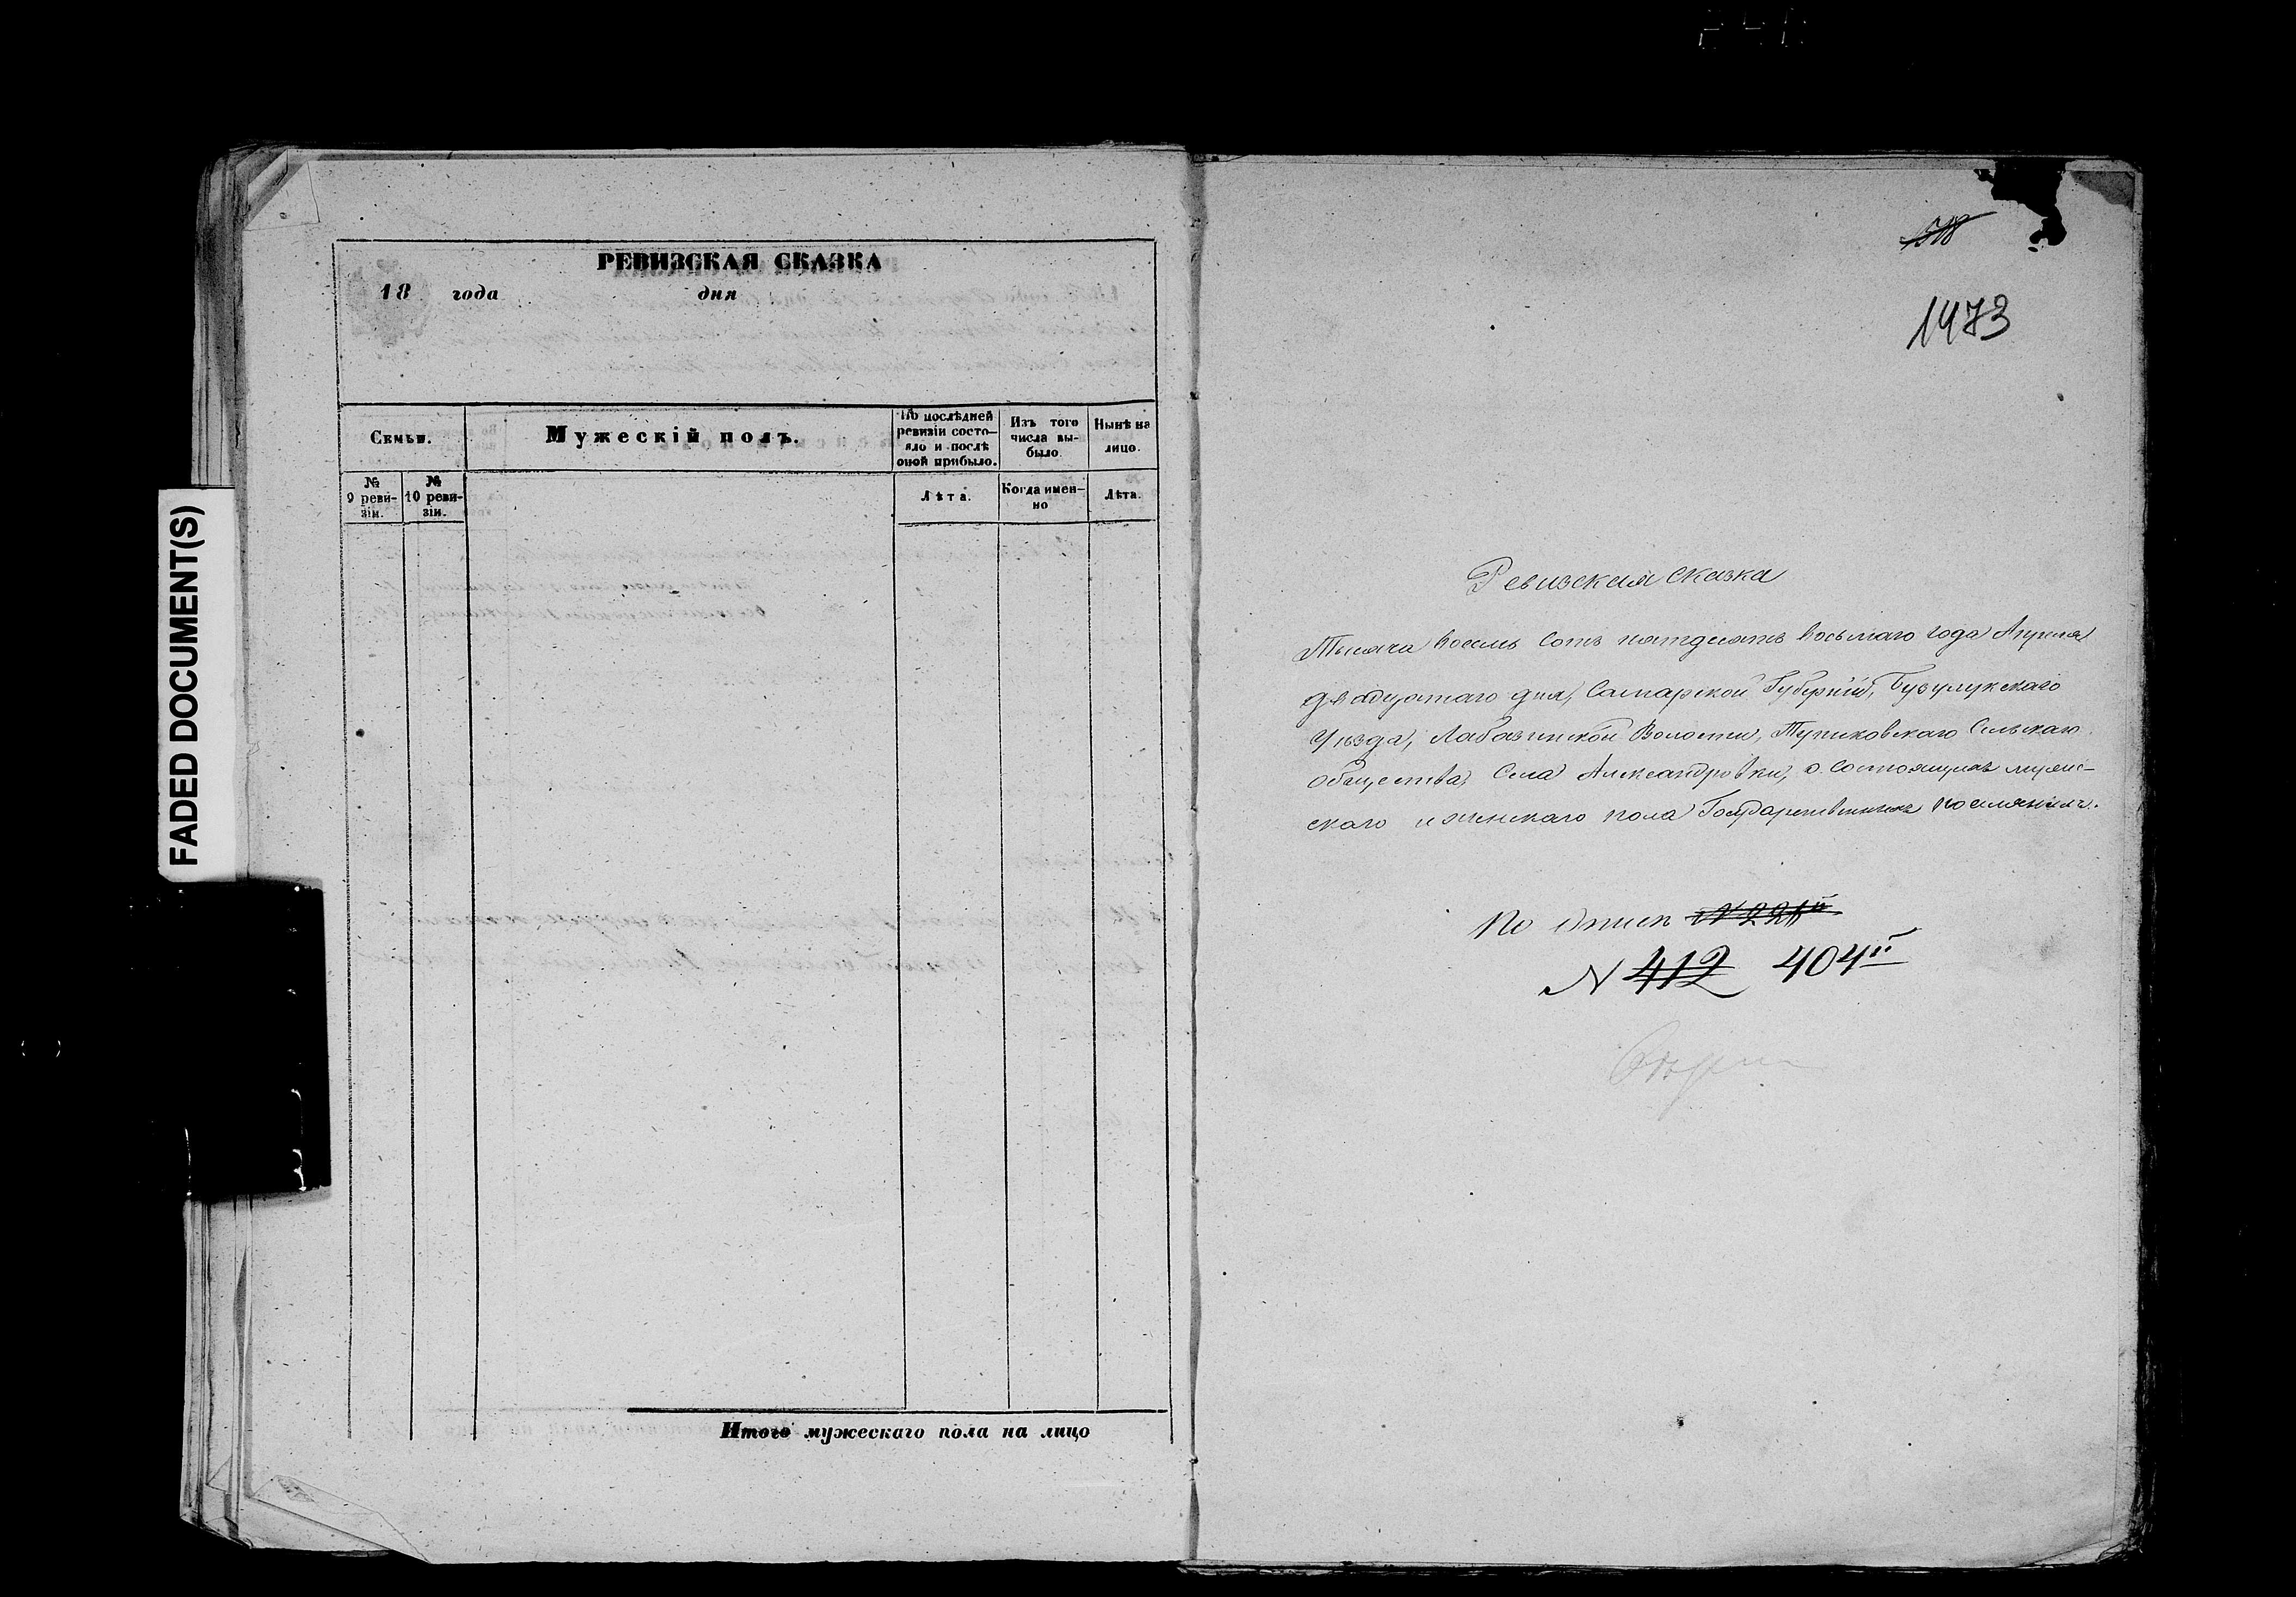 FADED DOCUMENT(S)
РЕВИЗСКАЯ СКАЗКА
18 года дня
Семьи.
Мужескій полъ.
По послѣдней ревизіи состо-
яло и послѣ
оной прибыло.
Изъ того
числа вы-
было.
Нынѣ на
лицо.
№
9 реви-
зіи.
№
10 реви-
зіи.
Лѣта.
Когда имен-
но
Лѣта.
Итого мужескаго пола на лицо
1473
Ревизская сказка
Тысяча восемь сотъ пятдесятъ восьмаго года Апреля
двадцатаго дня, Самарской Губерніи, Бузулукскаго
Уѣзда, Лабазинской Волости, Тупиковскаго Сельскаго
общества, Села Александровки, о состоящихъ мужес-
скаго и женскаго пола Государственныхъ поселянъ.
По описи
N 412 404й